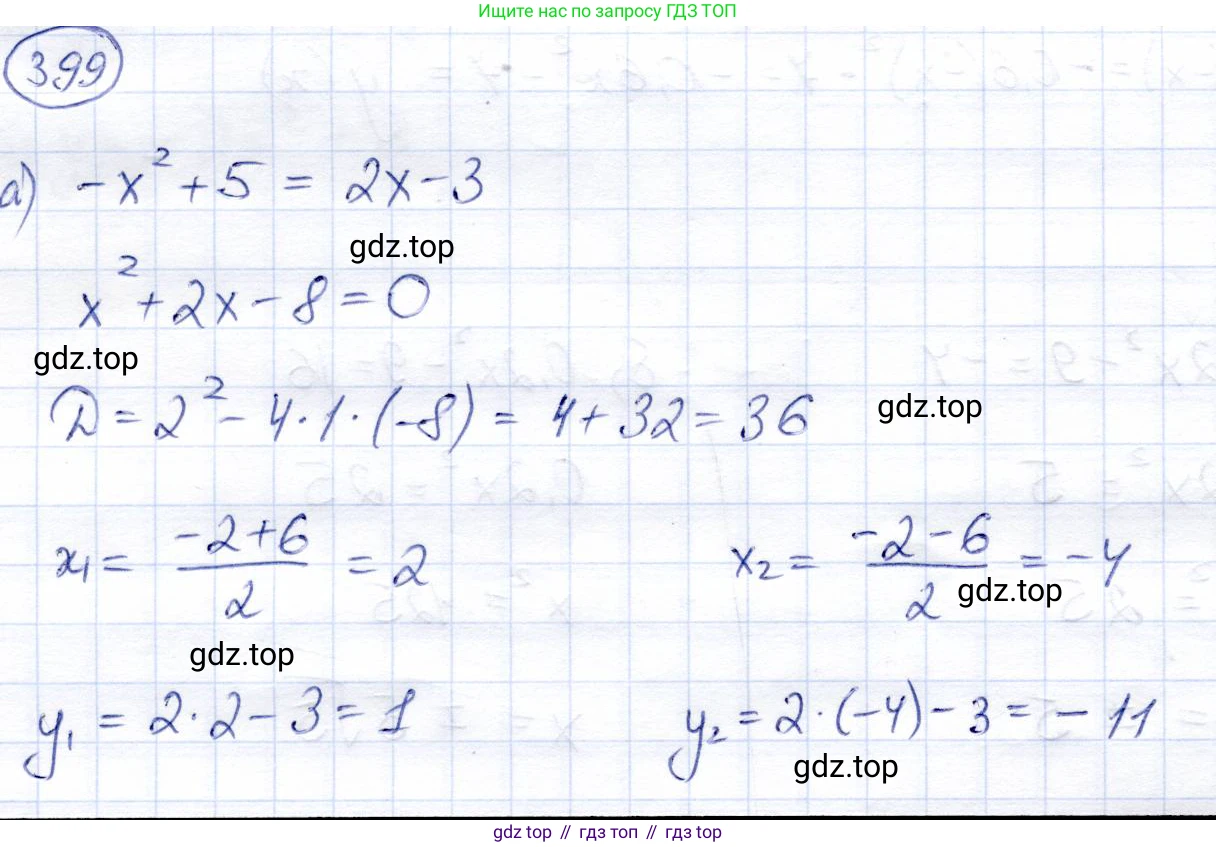 Ищите нас по запросу ГДЗ ТОП
399
а) -x² + 5 = 2x - 3
gdz.top
x² + 2x - 8 = 0
gdz.top
D = 2² - 4·1·(-8) = 4 + 32 = 36
gdz.top
x₁ = (-2+6)/2 = 2    x₂ = (-2-6)/2 = -4
gdz.top
gdz.top
y₁ = 2·2 - 3 = 1    y₂ = 2·(-4) - 3 = -11
gdz.top
gdz top // гдз топ // gdz top